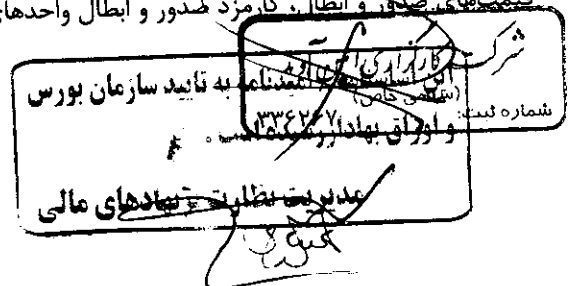 قیمت‌های صدور و ابطال، کارمزد صدور و ابطال واحدهای
شرکت کارگزاری امین آوید
(سهامی خاص)
شماره ثبت: ۳۳۶۲۶۷
این اساسنامه / امیدنامه به تایید سازمان بورس
و اوراق بهادار رسیده است.
مدیریت نظارت بر نهادهای مالی